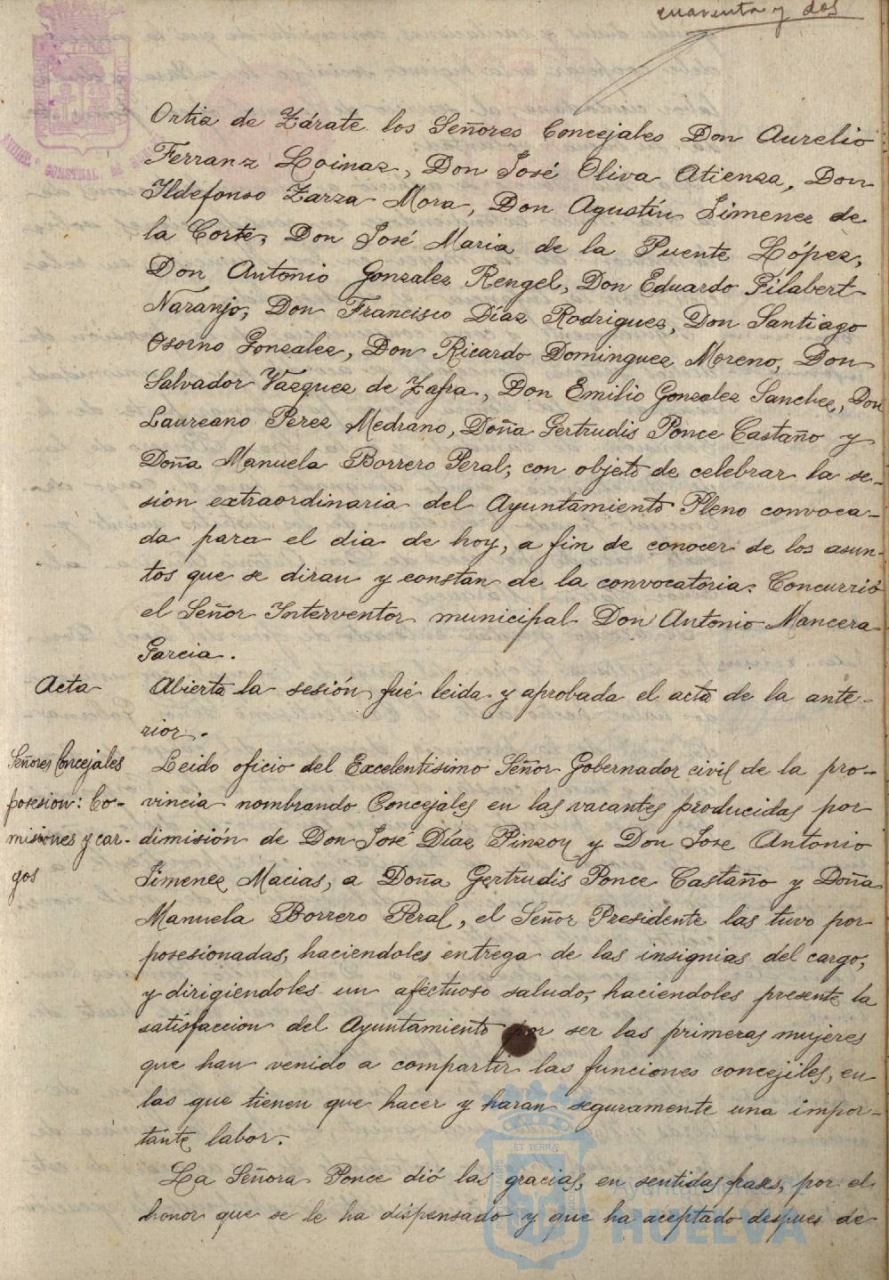 cuarenta y dos
Ortiz de Zárate los Señores Concejales Don Aurelio
Ferranz Loinaz, Don José Oliva Atienza, Don
Ildefonso Zarza Mora, Don Agustín Jimenez de
la Corte, Don José Maria de la Puente López,
Don Antonio Gonzalez Rengel, Don Eduardo Filabert
Naranjo, Don Francisco Díaz Rodriguez, Don Santiago
Osorno Gonzalez, Don Ricardo Dominguez Moreno, Don
Salvador Vazquez de Zafra, Don Emilio Gonzalez Sanchez, Don
Laureano Perez Medrano, Doña Gertrudis Ponce Castaño y
Doña Manuela Borrero Peral, con objeto de celebrar la se-
sion extraordinaria del Ayuntamiento Pleno convoca-
da para el dia de hoy, a fin de conocer de los asun-
tos que se diran y constan de la convocatoria. Concurrió
el Señor Interventor municipal Don Antonio Mancera
Garcia.
Acta
Abierta la sesión, fué leida y aprobada el acta de la ante-
rior.
Señores Concejales
posesion: Co-
misiones y car-
gos
Leido oficio del Excelentisimo Señor Gobernador civil de la pro-
vincia nombrando Concejales en las vacantes producidas por
dimisión de Don José Díaz Pinzon y Don Jose Antonio
Jimenez Macias, a Doña Gertrudis Ponce Castaño y Doña
Manuela Borrero Peral, el Señor Presidente las tuvo por
posesionadas, haciendoles entrega de las insignias del cargo,
y dirigiendoles un afectuoso saludo, haciendoles presente la
satisfaccion del Ayuntamiento por ser las primeras mujeres
que han venido a compartir las funciones concejiles, en
las que tienen que hacer y haran seguramente una impor-
tante labor.
La Señora Ponce dió las gracias, en sentidas frases, por el
honor que se le ha dispensado y que ha aceptado despues de
Ayuntamiento de
HUELVA